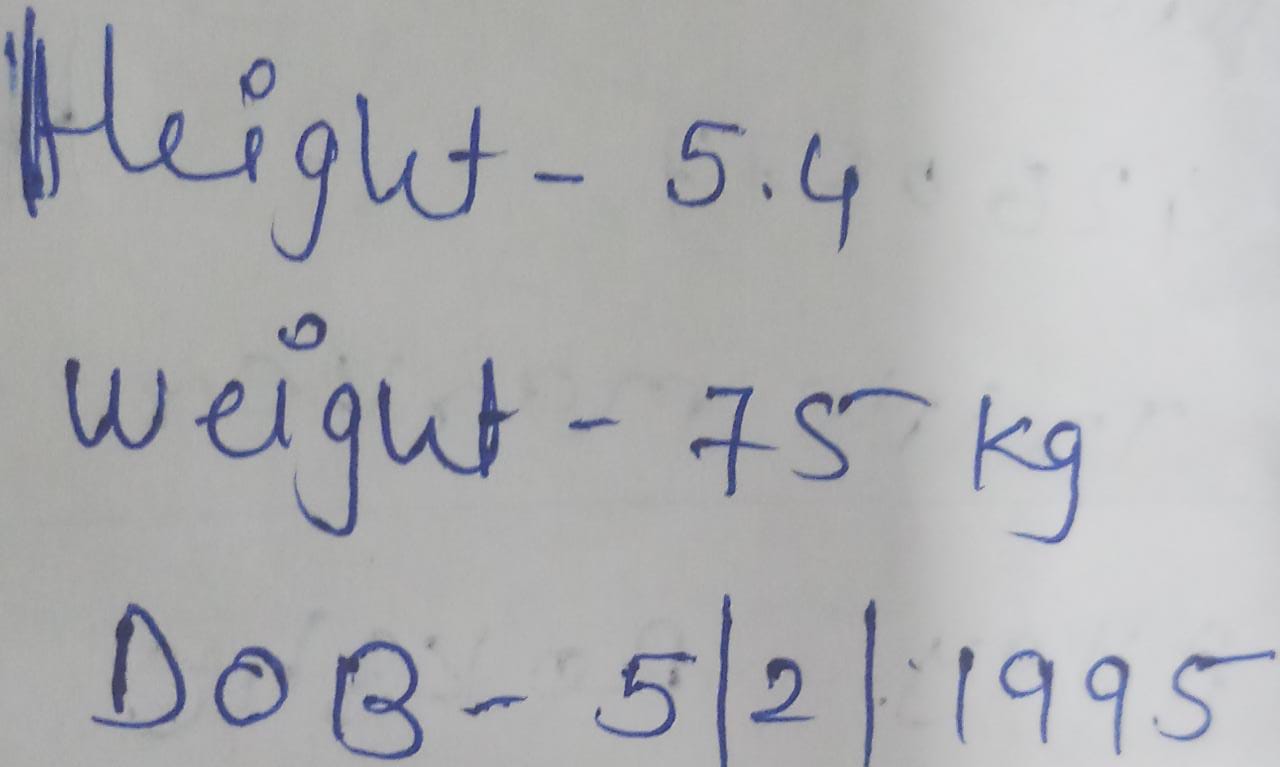 Height - 5.4
Weight - 75 kg
DOB - 5/2/1995